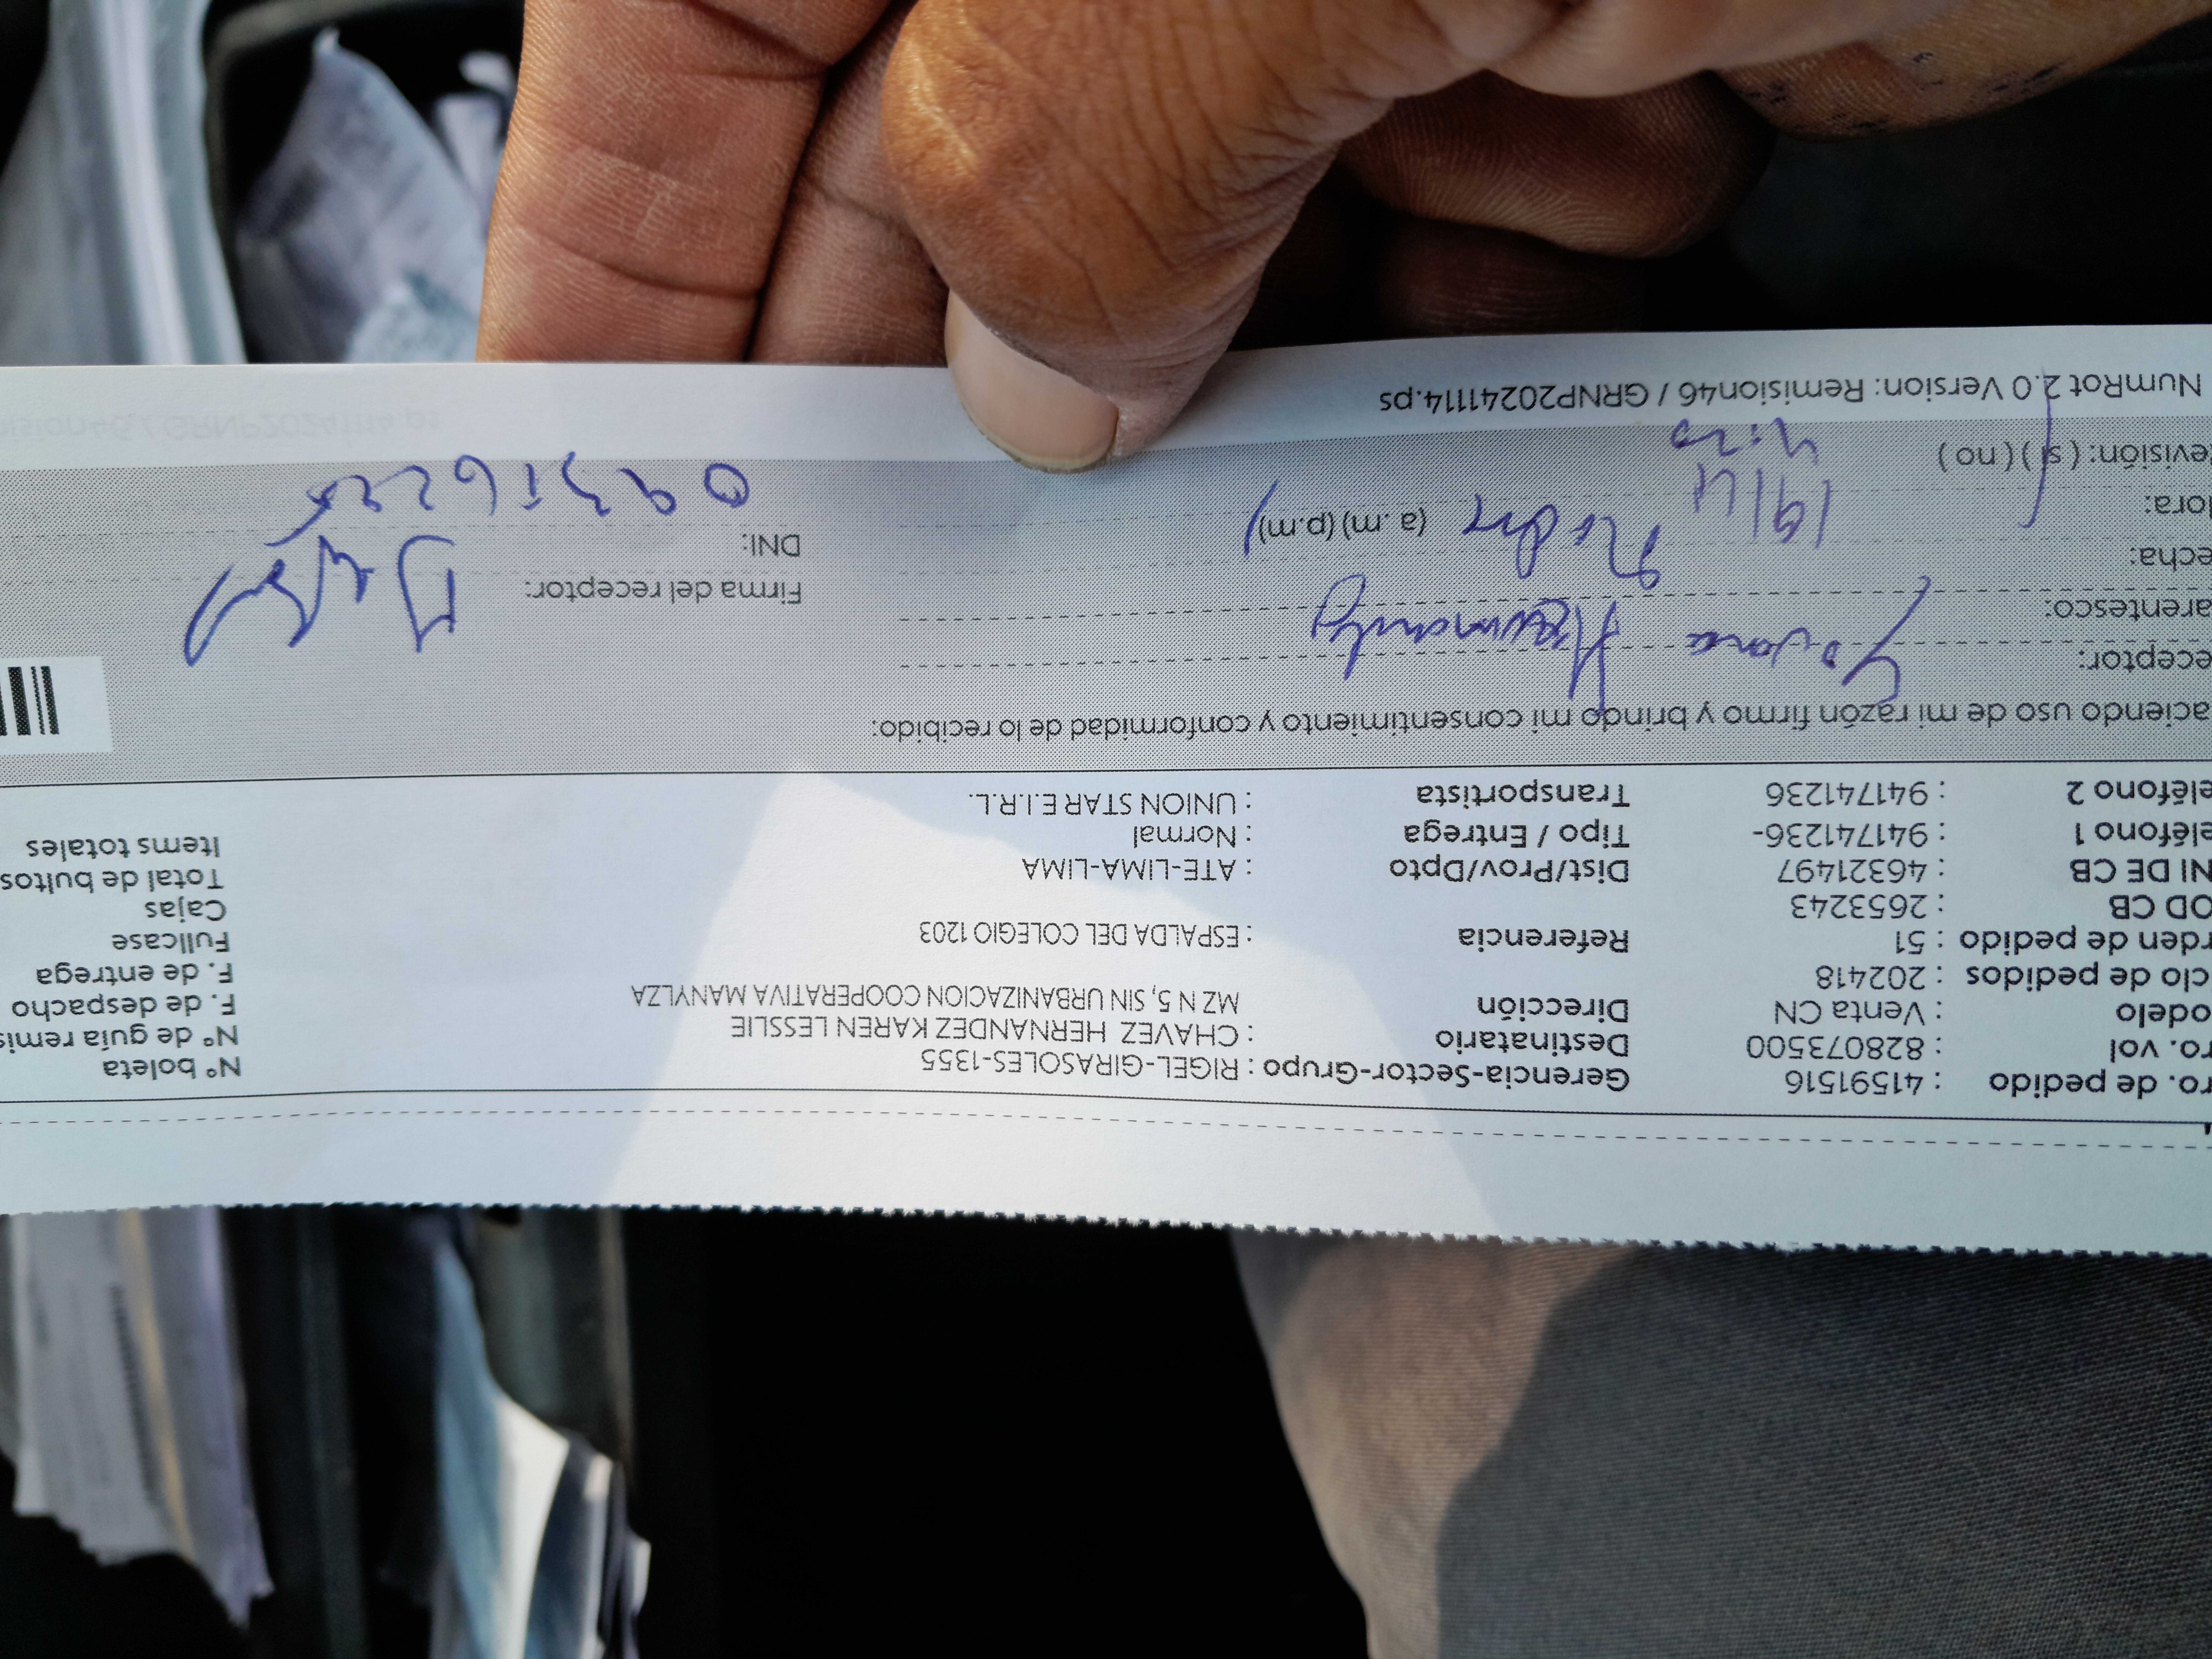 ro. de pedido : 41591516 Gerencia-Sector-Grupo : RIGEL-GIRASOLES-1355 N° boleta
ro. vol : 828073500 Destinatario : CHAVEZ HERNANDEZ KAREN LESSLIE N° de guía remis
odelo : Venta CN Dirección MZ N 5, SIN URBANIZACION COOPERATIVA MANYLZA F. de despacho
clo de pedidos : 202418 F. de entrega
rden de pedido : 51 Referencia : ESPALDA DEL COLEGIO 1203 Fullcase
OD CB : 2653243 Cajas
NI DE CB : 46321497 Dist/Prov/Dpto : ATE-LIMA-LIMA Total de bultos
eléfono 1 : 941741236- Tipo / Entrega : Normal Items totales
eléfono 2 : 941741236 Transportista : UNION STAR E.I.R.L.
aciendo uso de mi razón firmo y brindo mi consentimiento y conformidad de lo recibido:
eceptor:
arentesco: Firma del receptor:
echa: 19/4 DNI:
lora: 4:20 (a.m) (p.m)
evisión: ( si ) ( no )
NumRot 2.0 Version: Remision46 / GRNP20241114.ps